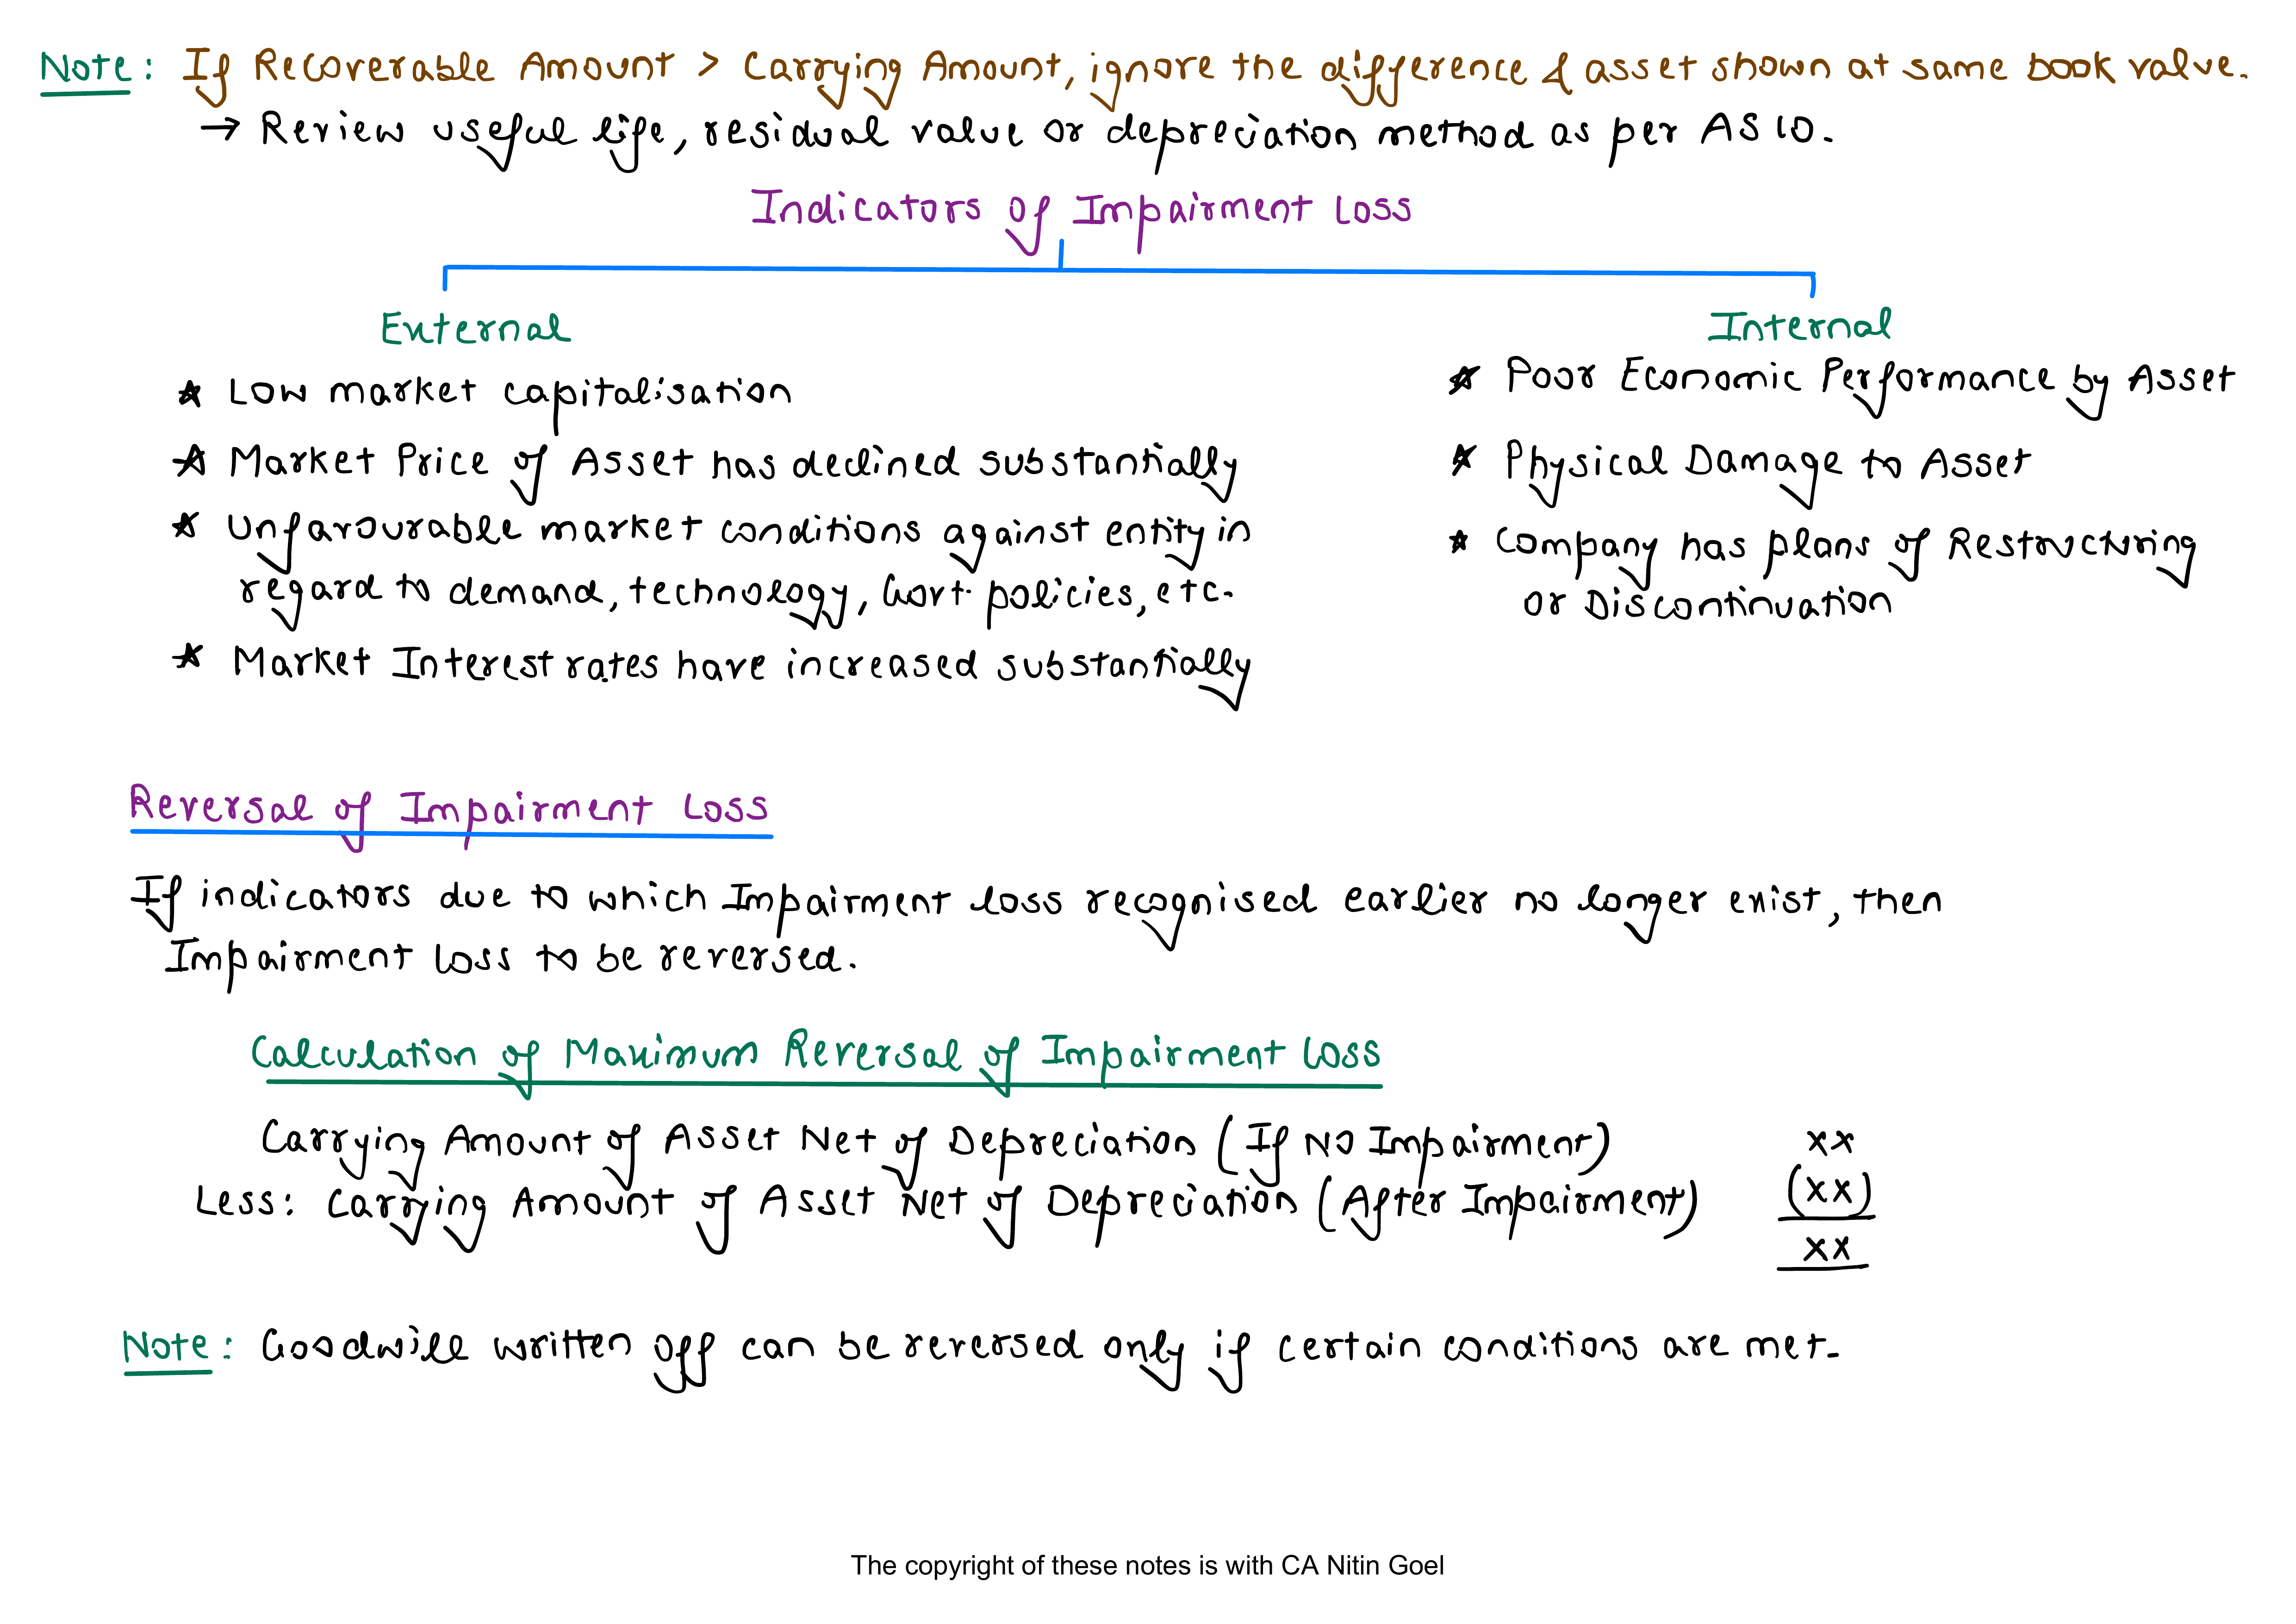 Note: If Recoverable Amount > Carrying Amount, ignore the difference & asset shown at same book value.
→ Review useful life, residual value or depreciation method as per AS 10.
Indicators of Impairment Loss
External
★ Low market capitalisation
★ Market Price of Asset has declined substantially
★ Unfavourable market conditions against entity in
regard to demand, technology, Govt. policies, etc.
★ Market Interest rates have increased substantially
Internal
★ Poor Economic Performance by Asset
★ Physical Damage to Asset
★ Company has plans of Restructuring
or Discontinuation
Reversal of Impairment Loss
If indicators due to which Impairment loss recognised earlier no longer exist, then
Impairment Loss to be reversed.
Calculation of Maximum Reversal of Impairment Loss
Carrying Amount of Asset Net of Depreciation (If No Impairment) xx
Less: Carrying Amount of Asset Net of Depreciation (After Impairment) (xx)
xx
Note: Goodwill written off can be reversed only if certain conditions are met.
The copyright of these notes is with CA Nitin Goel